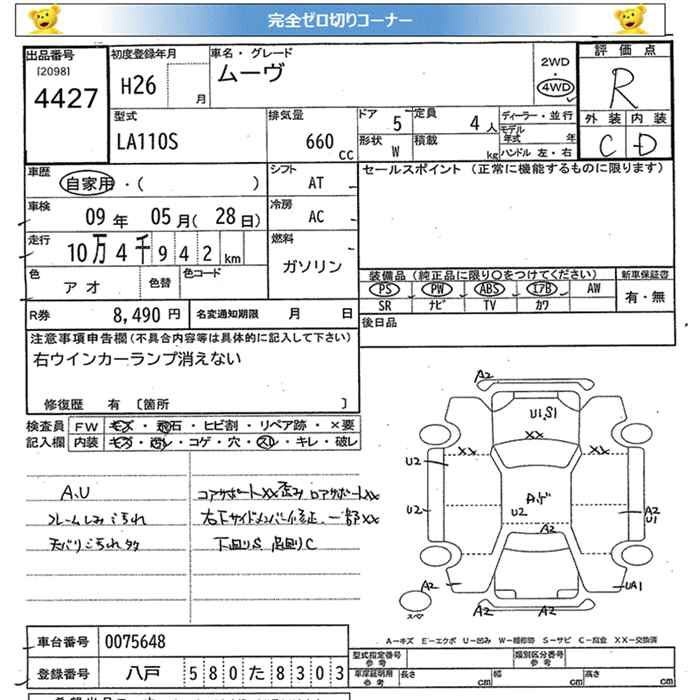 完全ゼロ切りコーナー
出品番号
[2098]
4427
初度登録年月
H26
月
車名・グレード
ムーヴ
2WD
4WD
評価点
R
外装 内装
C D
型式
LA110S
排気量
660 cc
ドア
5
定員
4 人
形状
W
積載
kg
ディーラー・並行
モデル年式 年
ハンドル 左・右
車歴
自家用・( )
シフト
AT
セールスポイント (正常に機能するものに限ります)
車検
09 年 05 月( 28 日)
冷房
AC
走行
10万4千942 km
燃料
ガソリン
色
アオ
色替
色コード
装備品 (純正品に限り○をつけてください)
新車保証書
PS PW ABS エアB AW
有・無
SR ナビ TV カワ
R券
8,490 円
名変通知期限 月 日
後日品
注意事項申告欄(不具合内容等は具体的に記入して下さい)
右ウインカーランプ消えない
修復歴 有 [箇所 ]
検査員 FW キズ・飛石・ヒビ割・リペア跡・×要
記入欄 内装 キズ・汚レ・コゲ・穴・スレ・キレ・破レ
A.U
フレームしみこられ
下回りS 足回りC
A2
U1,S1
XX
XX XX
U2
U2
U2
A2
U1
A2
A2
UA1
A2 A2
スペア
A-キズ E-エクボ U-凹み W-補修跡 S-サビ C-腐食 XX-交換済
車台番号 0075648
登録番号 八戸 580た8303
型式指定番号
参考
類別区分番号
参考
車庫証明用
参考
長さ cm 幅 cm 高さ cm